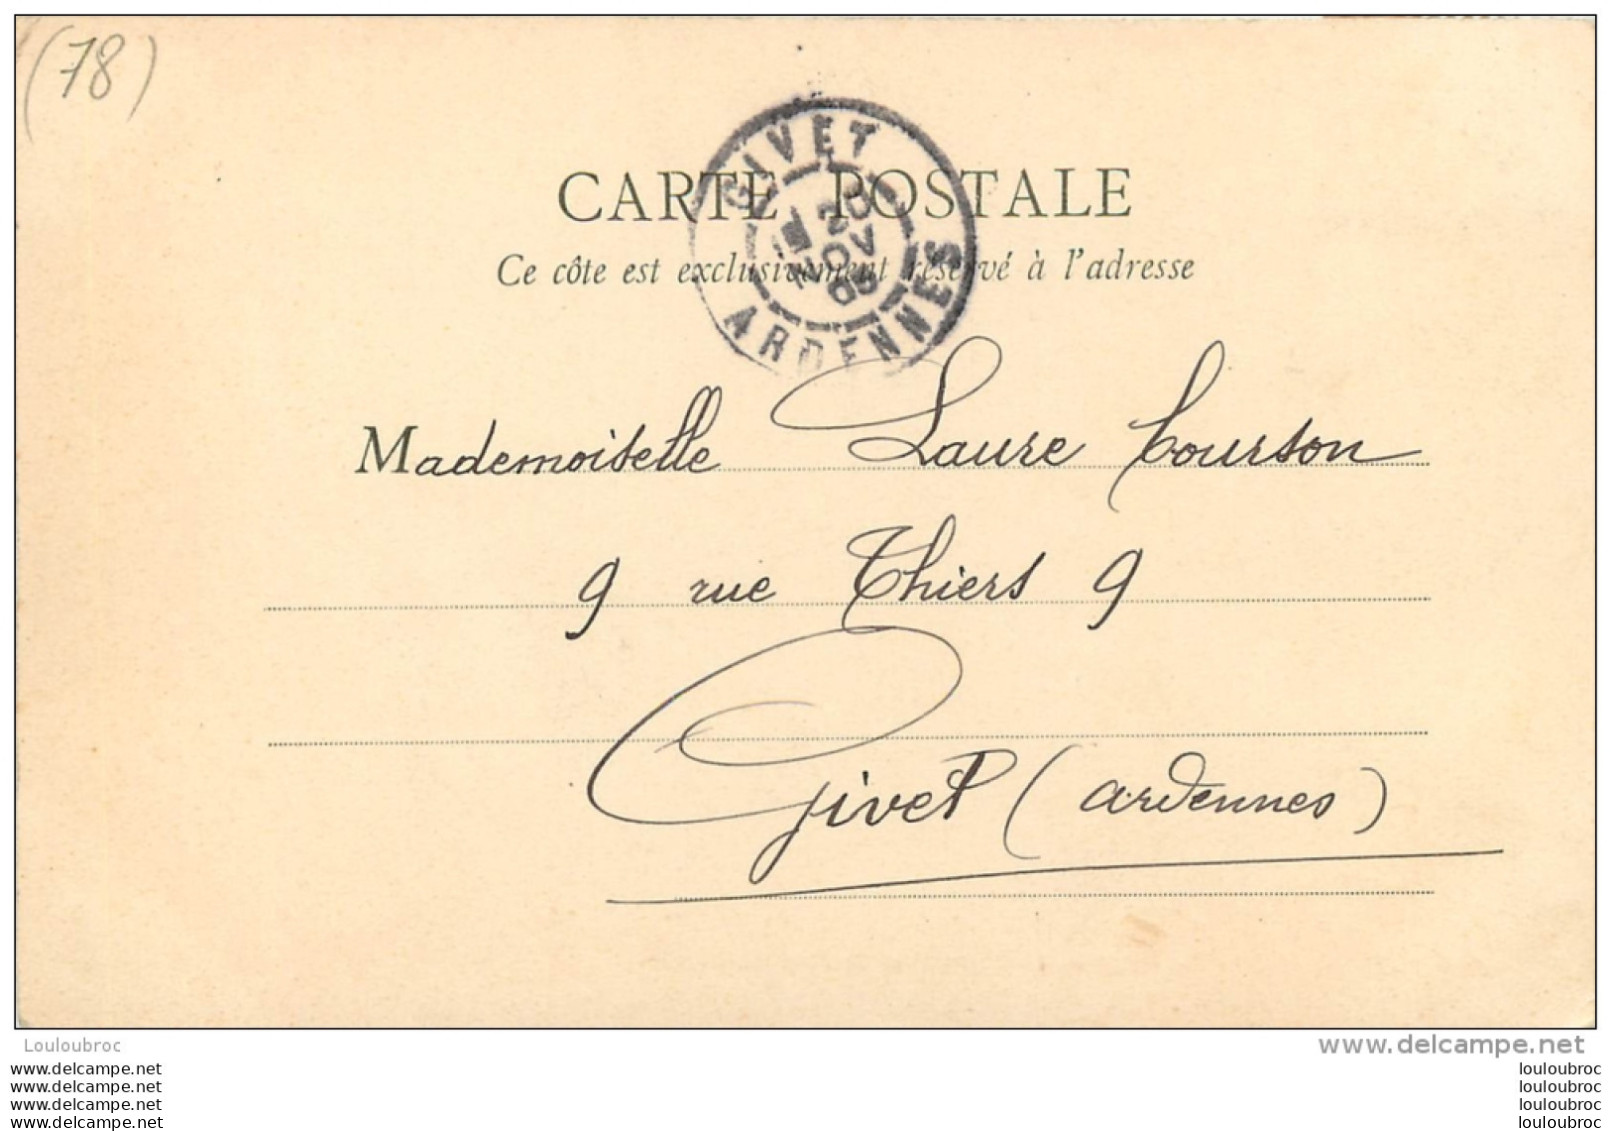 (78)
GIVET
20
NOV
ARDENNES
CARTE POSTALE
Ce côte est exclusivement réservé à l'adresse
Mademoiselle Laure Courson
9 rue Thiers 9
Givet (Ardennes)
Louloubroc
www.delcampe.net
www.delcampe.net
www.delcampe.net
www.delcampe.net
www.delcampe.net
louloubroc
louloubroc
louloubroc
louloubroc